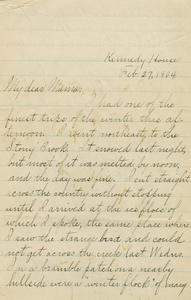 Kennedy House
Feb. 27, 1904
My dear Mamma,
I had one of the
finest trips of the winter this af-
ternoon. I went northeast, to the
Stony Brook. It snowed last night,
but most of it was melted by noon,
and the day was fine. I cut straight
across the country without stopping
until I arrived at the ice floes of
which I spoke, the same place where
I saw the strange bird and could
not get across the creek last Wednes.
In a bramble patch on a nearby
hillside were a winter flock of many